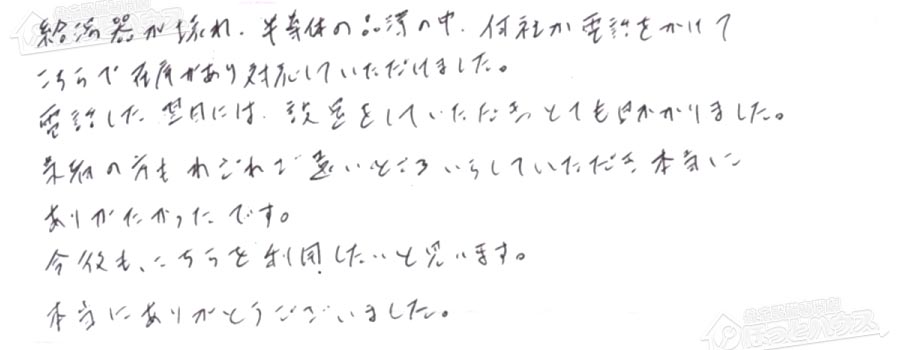 給湯器が壊れ、半導体の品薄の中、何社か電話をかけて
こちらで在庫があり対応していただけました。
電話した翌日には、設置をしていただきとても助かりました。
の方もわざわざ遠いところいらしていただき本当に
ありがたかったです。
今後も、こちらを利用したいと思います。
本当にありがとうございました。
ほっとハウス